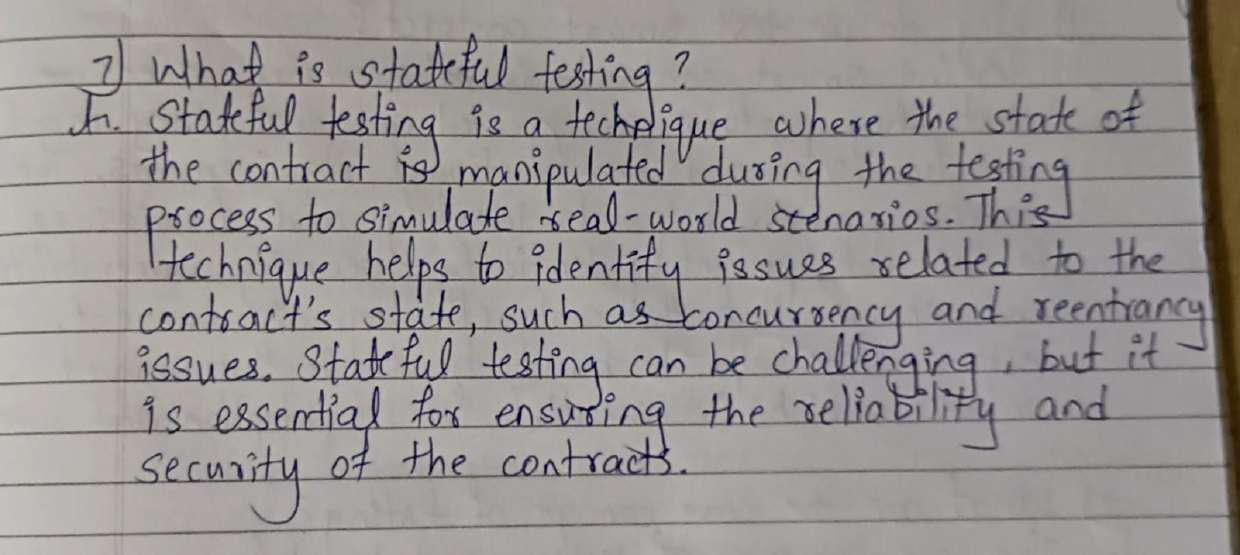 7) What is stateful testing?
h. Stateful testing is a technique where the state of
the contract is manipulated during the testing
process to simulate real-world scenarios. This
technique helps to identify issues related to the
contract's state, such as concurrency and reentrancy
issues. Stateful testing can be challenging, but it
is essential for ensuring the reliability and
security of the contracts.